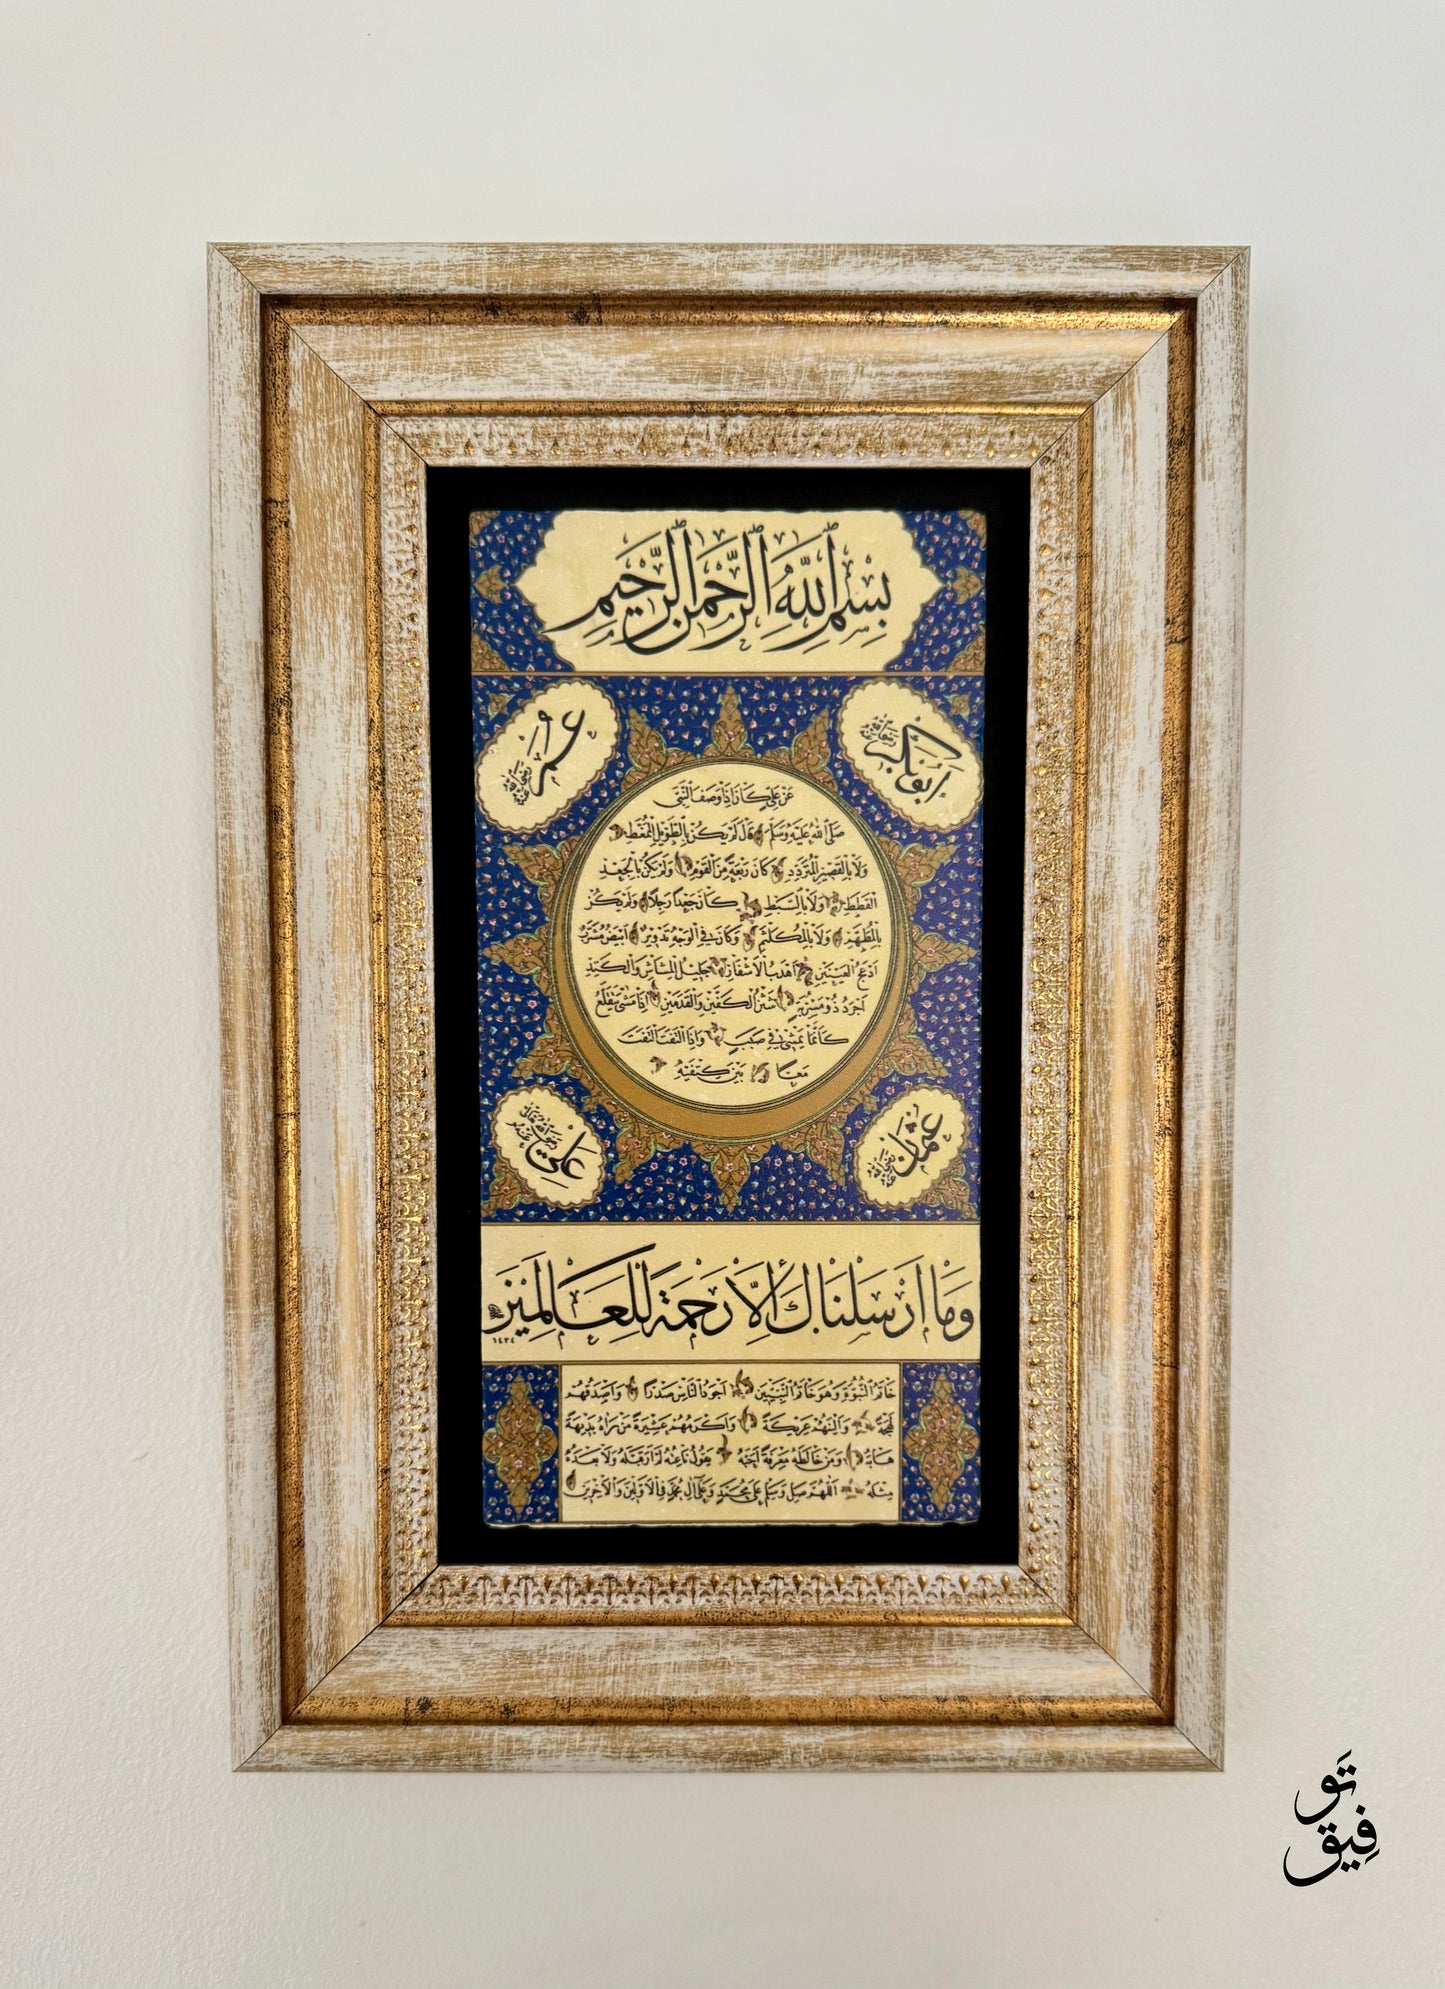 بِسْمِ ٱللَّهِ ٱلرَّحْمَنِ ٱلرَّحِيمِ
أبو بكر رضي الله تعالى عنه
عمر رضي الله عنه
عن علي كان إذا وصف النبي
صلى الله عليه وسلم قال لم يكن بالطويل الممغط
ولا بالقصير المتردد كان ربعة من القوم ولم يكن بالجعد
القطط ولا بالسبط كان جعدا رجلا ولم يكن
بالمطهم ولا بالمكلثم وكان في الوجه تدوير أبيض مشرب
أدعج العينين أهدب الأشفار جليل المشاش والكتد
أجرد ذو مسربة شثن الكفين والقدمين إذا مشى يتقلع
كأنما يمشي في صبب وإذا التفت التفت
معا بين كتفيه
عثمان رضي الله عنه
علي رضي الله تعالى عنه
وما أرسلناك إلا رحمة للعالمين
١٤٣٤
خاتم النبوة وهو خاتم النبيين أجود الناس صدرا وأصدقهم
لهجة وألينهم عريكة وأكرمهم عشيرة من رآه بديهة
هابه ومن خالطه معرفة أحبه يقول ناعته لم أر قبله ولا بعده
مثله اللهم صل وسلم على محمد وعلى آل محمد في الأولين والآخرين
تَوفِيق